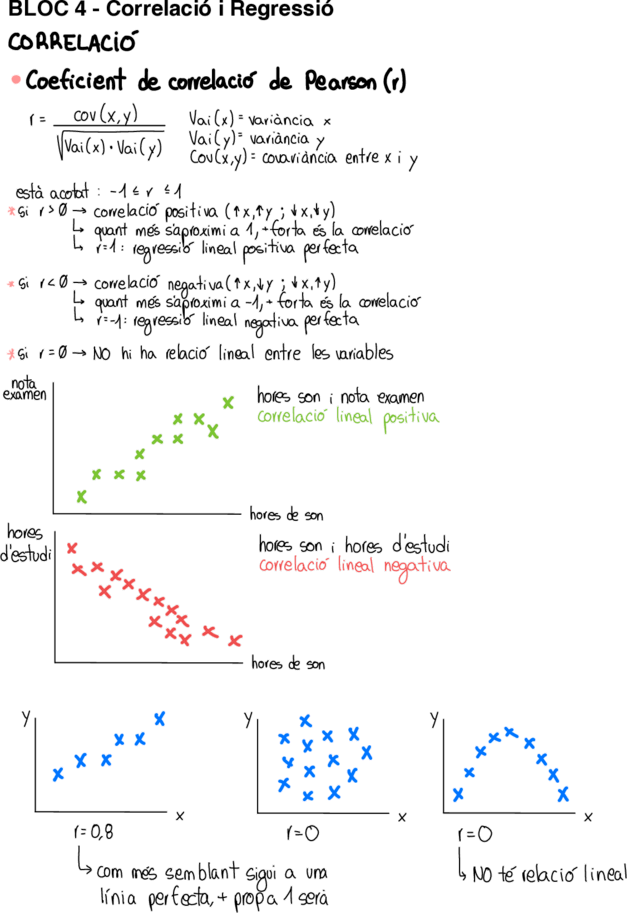 BLOC 4 - Correlació i Regressió
CORRELACIÓ
• Coeficient de correlació de Pearson (r)
r = cov(x,y) / √Vai(x)·Vai(y)
Vai(x) = variància x
Vai(y) = variància y
Cov(x,y) = covariància entre x i y
està acotat : -1 ≤ r ≤ 1
* Si r > 0 → correlació positiva (↑x,↑y ; ↓x,↓y)
↳ quant més s'aproximi a 1, + forta és la correlació
↳ r=1 : regressió lineal positiva perfecta
* Si r < 0 → correlació negativa (↑x,↓y ; ↓x,↑y)
↳ quant més s'aproximi a -1, + forta és la correlació
↳ r=-1 : regressió lineal negativa perfecta
* Si r = 0 → NO hi ha relació lineal entre les variables
nota
examen
hores son i nota examen
correlació lineal positiva
hores de son
hores
d'estudi
hores son i hores d'estudi
correlació lineal negativa
hores de son
y
x
r=0,8
↳ com més semblant sigui a una
línia perfecta, + prop a 1 serà
y
x
r=0
y
x
r=0
↳ NO té relació lineal